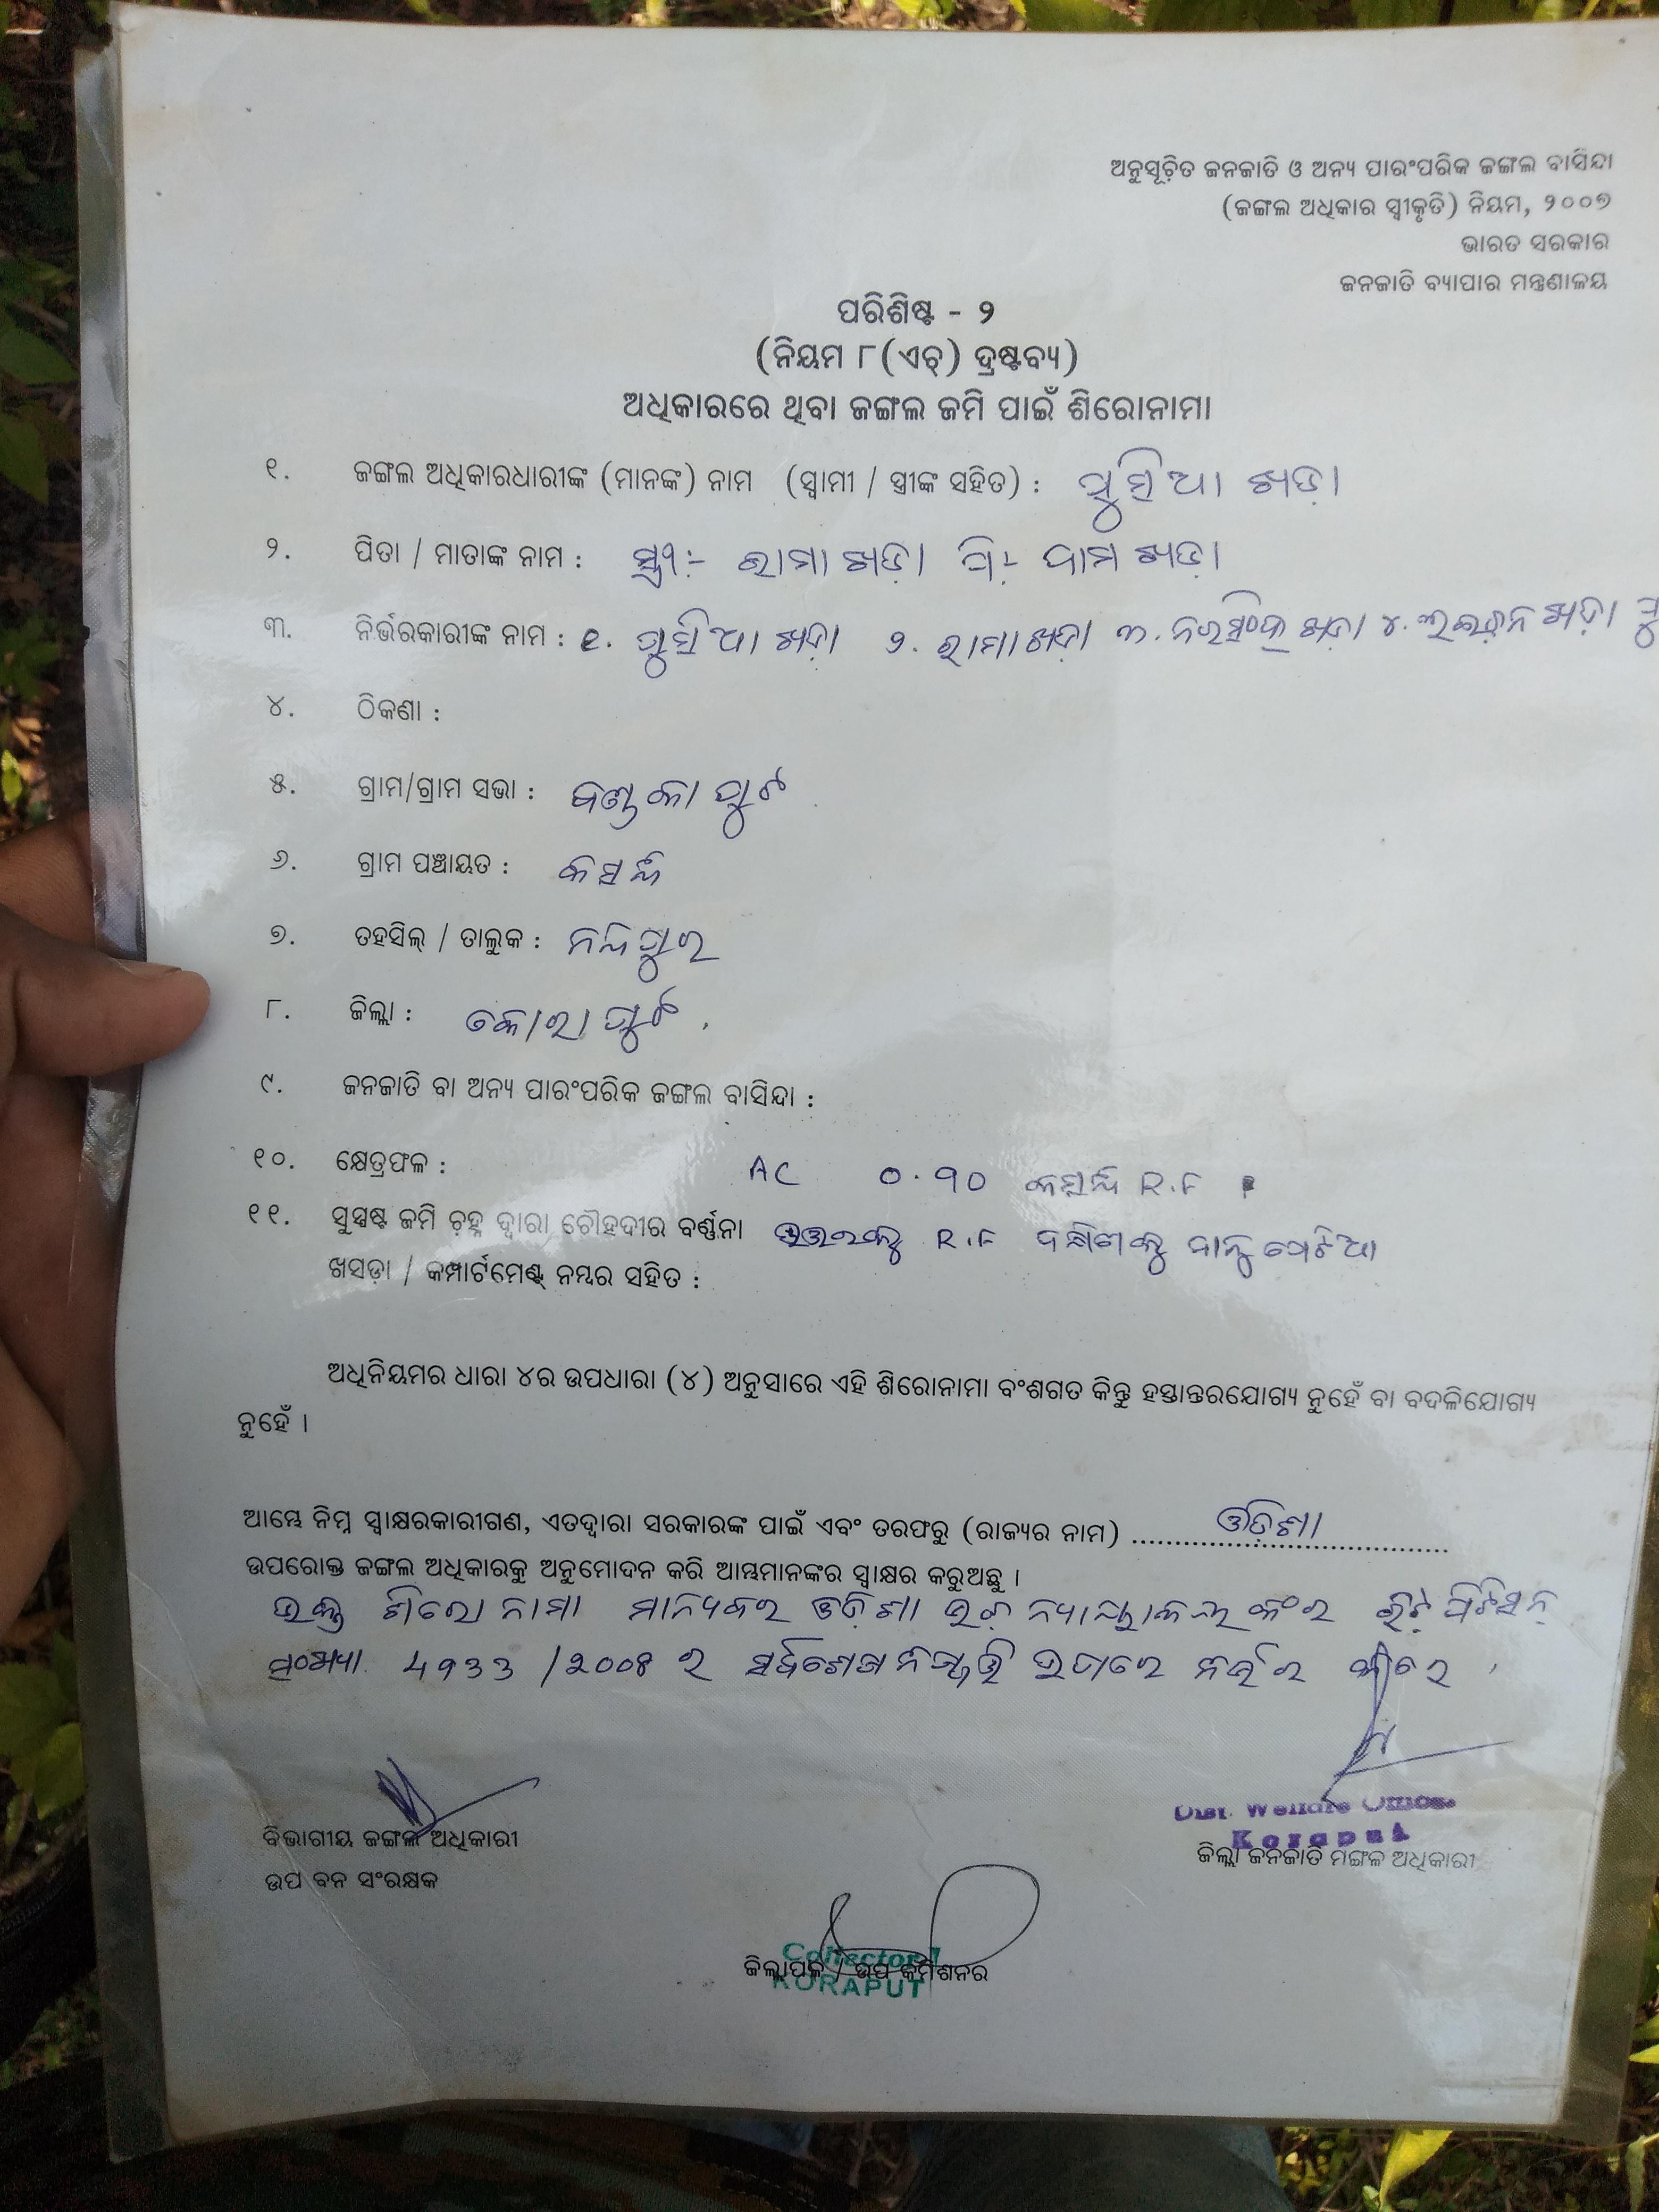 ଅନୁସୂଚିତ ଜନଜାତି ଓ ଅନ୍ୟ ପାରଂପରିକ ଜଙ୍ଗଲ ବାସିନ୍ଦା
(ଜଙ୍ଗଲ ଅଧିକାର ସ୍ୱୀକୃତି) ନିୟମ, ୨୦୦୭
ଭାରତ ସରକାର
ଜନଜାତି ବ୍ୟାପାର ମନ୍ତ୍ରଣାଳୟ
ପରିଶିଷ୍ଟ - ୨
(ନିୟମ ୮(ଏଚ୍) ଦ୍ରଷ୍ଟବ୍ୟ)
ଅଧିକାରରେ ଥିବା ଜଙ୍ଗଲ ଜମି ପାଇଁ ଶିରୋନାମା
୧. ଜଙ୍ଗଲ ଅଧିକାରଧାରୀଙ୍କ (ମାନଙ୍କ) ନାମ (ସ୍ୱାମୀ / ସ୍ତ୍ରୀଙ୍କ ସହିତ) : ଖଡ଼ା
୨. ପିତା / ମାତାଙ୍କ ନାମ : ରାମା ଖଡ଼ା ପି:- ଦାମ ଖଡ଼ା
୩. ନିର୍ଭରକାରୀଙ୍କ ନାମ : ୧. ଖଡ଼ା ୨. ରାମା ଖଡ଼ା ୩. ଖଡ଼ା ୪. ଖଡ଼ା
୪. ଠିକଣା :
୫. ଗ୍ରାମ/ଗ୍ରାମ ସଭା :
୬. ଗ୍ରାମ ପଞ୍ଚାୟତ :
୭. ତହସିଲ୍ / ତାଲୁକ : ନନ୍ଦପୁର
୮. ଜିଲ୍ଲା : କୋରାପୁଟ
୯. ଜନଜାତି ବା ଅନ୍ୟ ପାରଂପରିକ ଜଙ୍ଗଲ ବାସିନ୍ଦା :
୧୦. କ୍ଷେତ୍ରଫଳ : AC ୦.୩୦ R.F
୧୧. ସୁସ୍ପଷ୍ଟ ଜମି ଚିହ୍ନ ଦ୍ୱାରା ଚୌହଦୀର ବର୍ଣ୍ଣନା ଉତ୍ତରକୁ R.F ଦକ୍ଷିଣକୁ
ଖସଡ଼ା / କମ୍ପାର୍ଟମେଣ୍ଟ୍ ନମ୍ବର ସହିତ :
ଅଧିନିୟମର ଧାରା ୪ର ଉପଧାରା (୪) ଅନୁସାରେ ଏହି ଶିରୋନାମା ବଂଶଗତ କିନ୍ତୁ ହସ୍ତାନ୍ତରଯୋଗ୍ୟ ନୁହେଁ ବା ବଦଳିଯୋଗ୍ୟ
ନୁହେଁ ।
ଆମ୍ଭେ ନିମ୍ନ ସ୍ୱାକ୍ଷରକାରୀଗଣ, ଏତଦ୍ୱାରା ସରକାରଙ୍କ ପାଇଁ ଏବଂ ତରଫରୁ (ରାଜ୍ୟର ନାମ) ଓଡ଼ିଶା
ଉପରୋକ୍ତ ଜଙ୍ଗଲ ଅଧିକାରକୁ ଅନୁମୋଦନ କରି ଆମ୍ଭମାନଙ୍କର ସ୍ୱାକ୍ଷର କରୁଅଛୁ ।
ଉକ୍ତ ଶିରୋନାମା ମାନ୍ୟବର ଓଡ଼ିଶା ରିଟ୍ ପିଟିସନ୍
ସଂଖ୍ୟା ର ଉପରେ ନିର୍ଭର
ବିଭାଗୀୟ ଜଙ୍ଗଲ ଅଧିକାରୀ
ଉପ ବନ ସଂରକ୍ଷକ
Dist. Welfare Officer
Koraput
ଜିଲ୍ଲା ଜନଜାତି ମଙ୍ଗଳ ଅଧିକାରୀ
Collector
ଜିଲ୍ଲାପାଳ / ଉପ କମିଶନର
KORAPUT